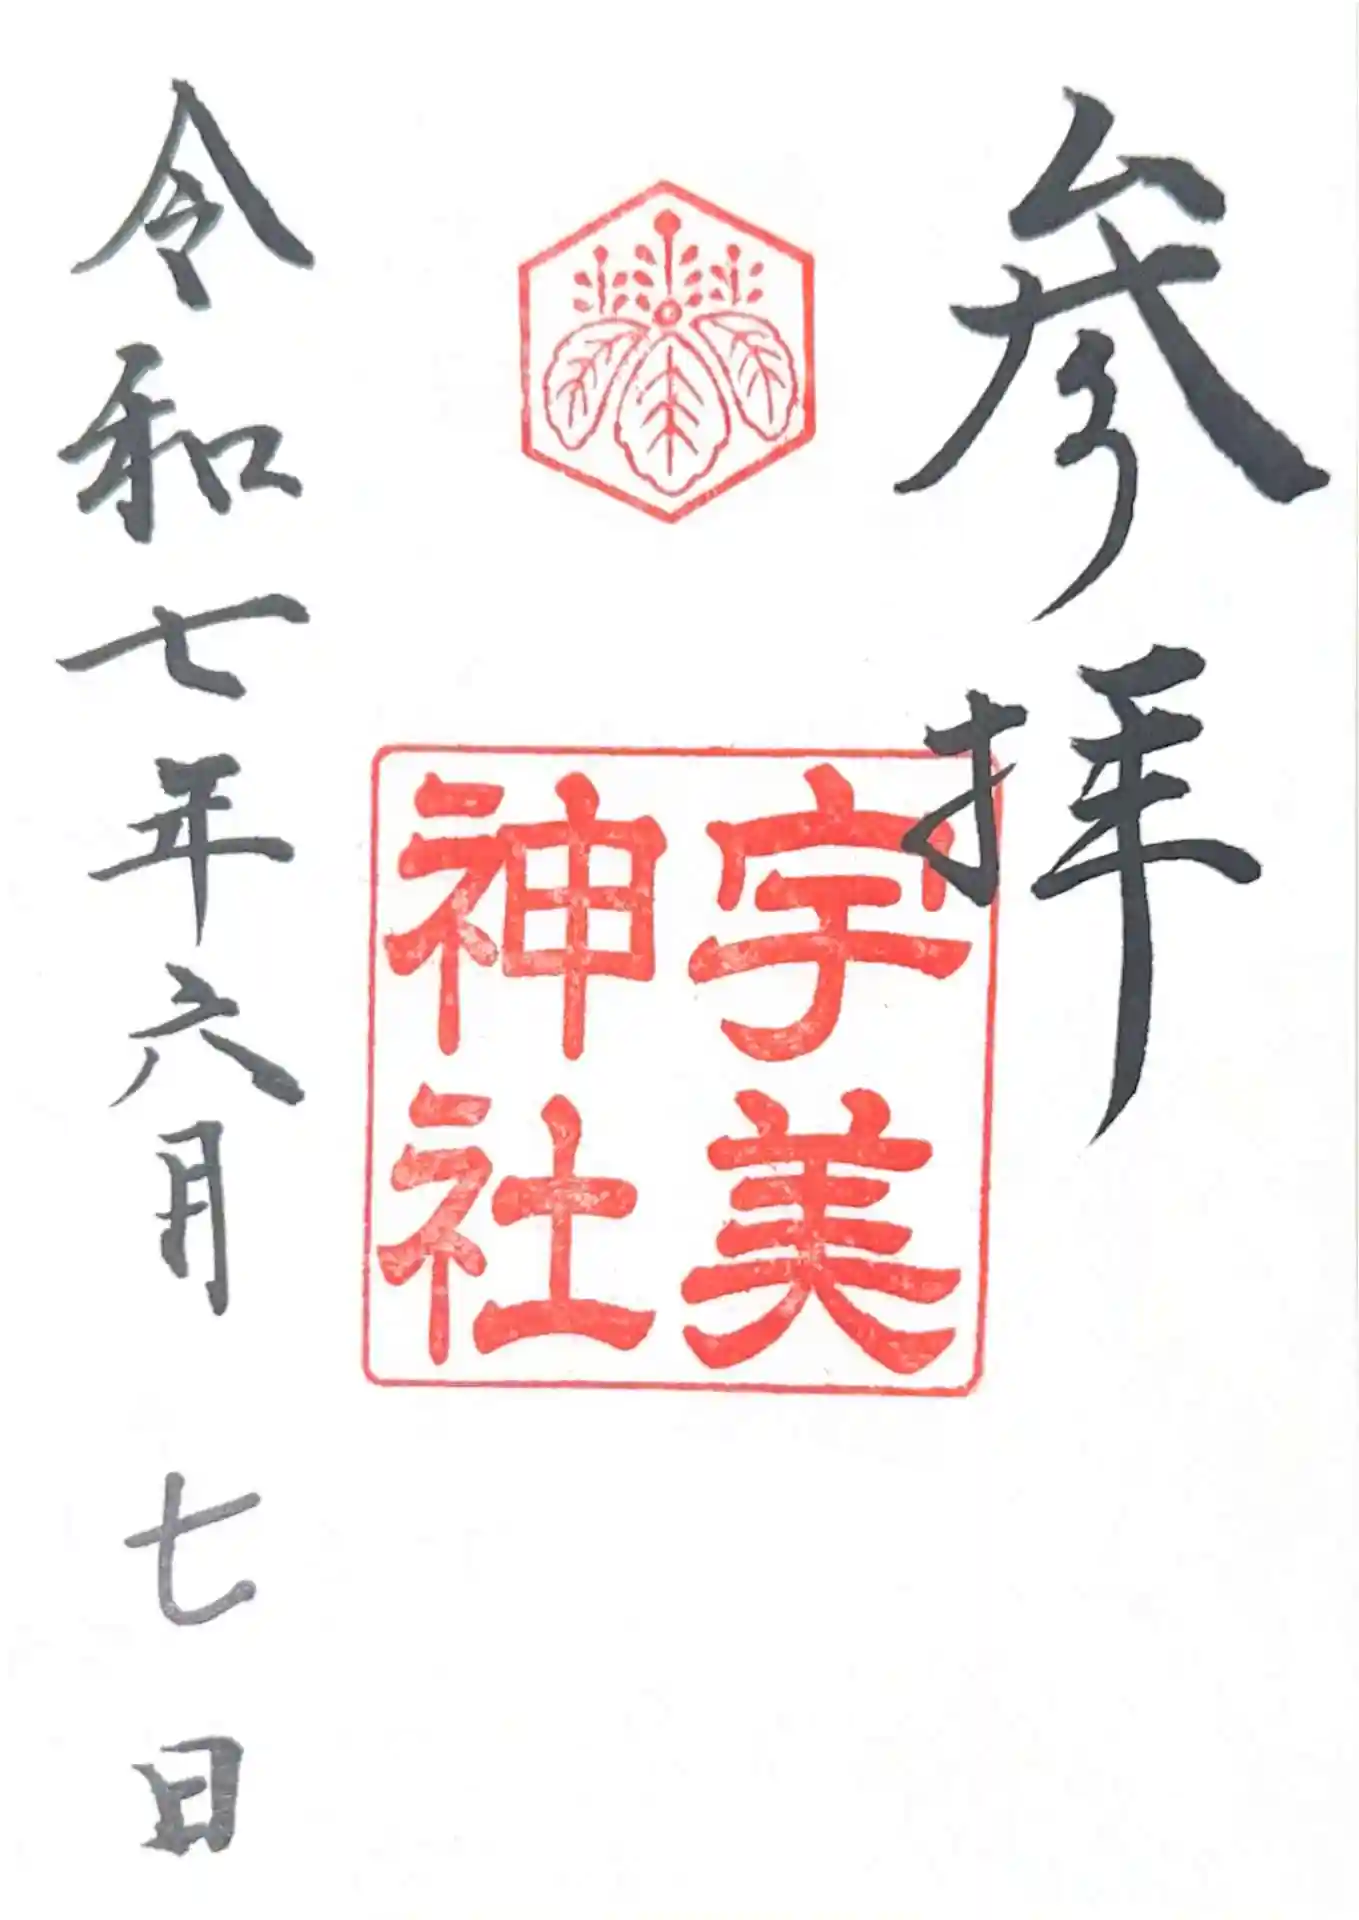 参拝
宇美
神社
令和七年六月七日